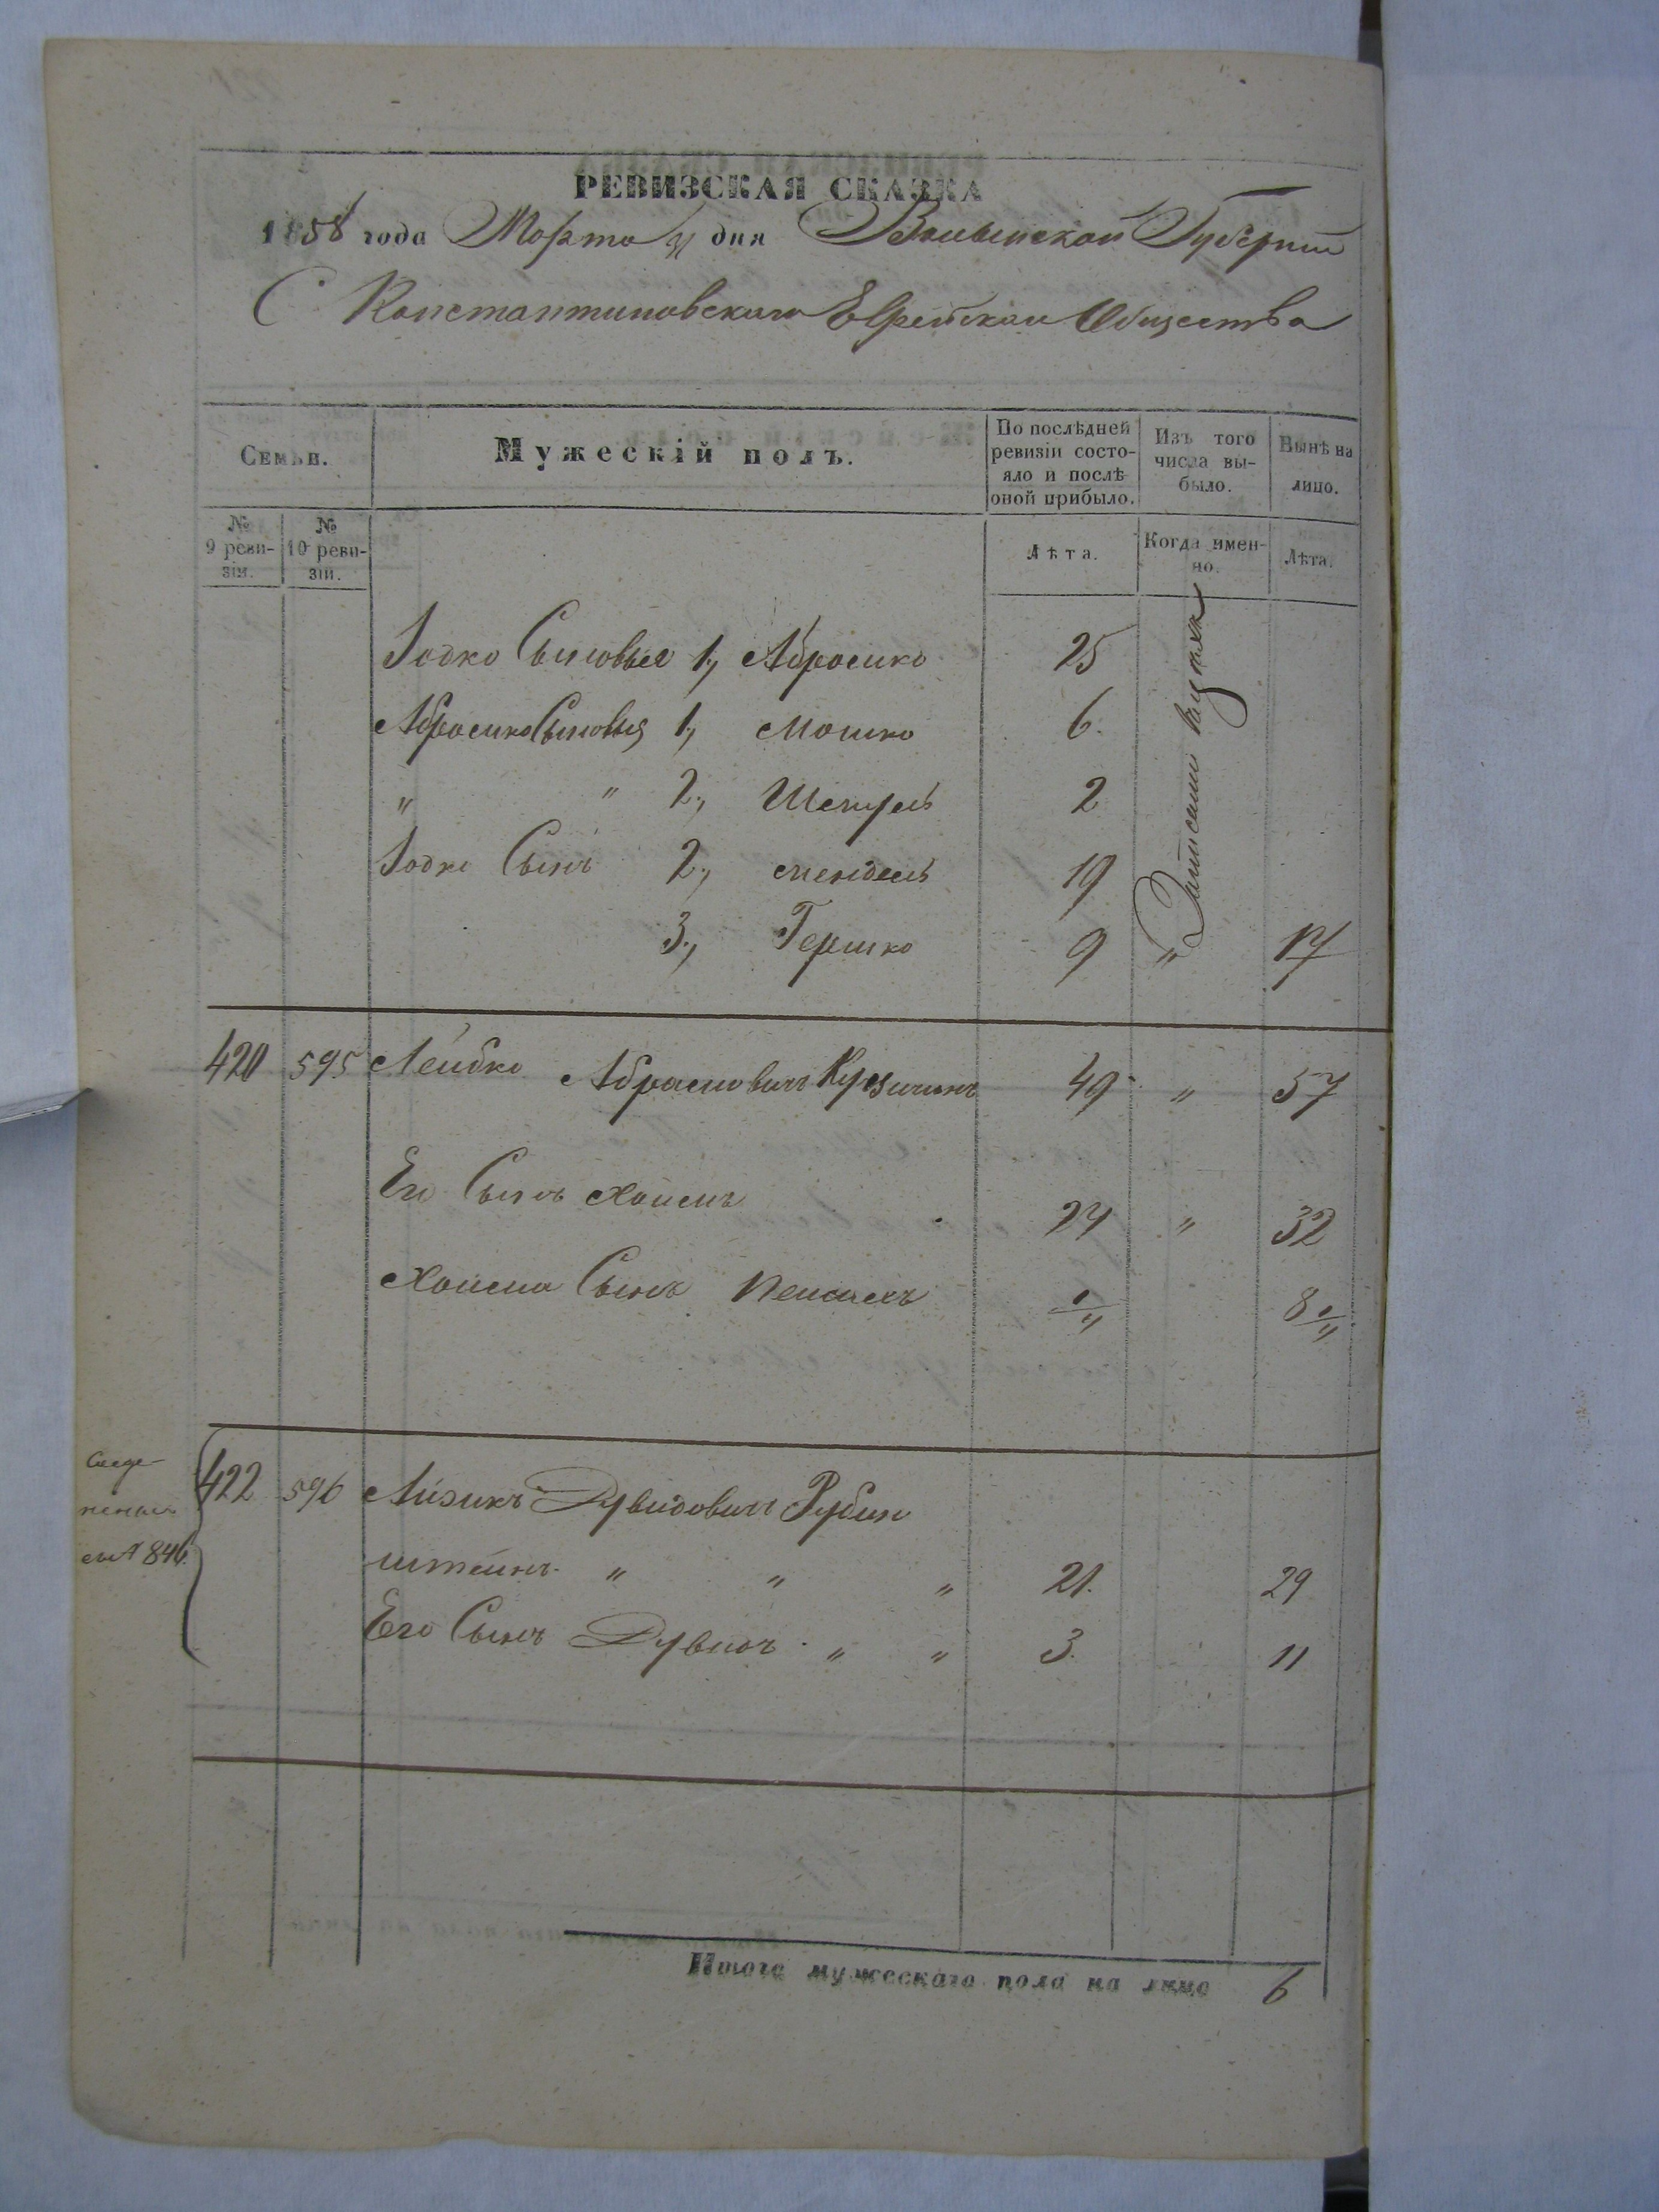 РЕВИЗСКАЯ СКАЗКА
1858 года Марта 31 дня Волынской Губернии
С Константиновскаго Еврейскаго Общества
Семьи.
Мужескій полъ.
По послѣдней ревизіи состо-
яло и послѣ
оной прибыло.
Изъ того
числа вы-
было.
Нынѣ на
лицо.
№
9 реви-
зіи.
№
10 реви-
зіи.
Лѣта.
Когда имен-
но.
Лѣта.
Іодко Сыновья 1, Абрамко 25
Абрамко Сыновья 1, Мошко 6.
" " 2, 2
Іодко Сынъ 2, Мендель 19
3, Гершко 9 " 17
420 595 Лейбко Абрамовичъ 49 " 57
Его Сынъ Хаимъ 24 " 32
Хаима Сынъ Пейсахъ 1/" 8 1/"
422 596 Айзикъ Дувидовичъ Рубин
штейнъ " " " 21. 29
Его Сынъ Дувидъ " " 3. 11
846.
Итого мужескаго пола на лицо 6